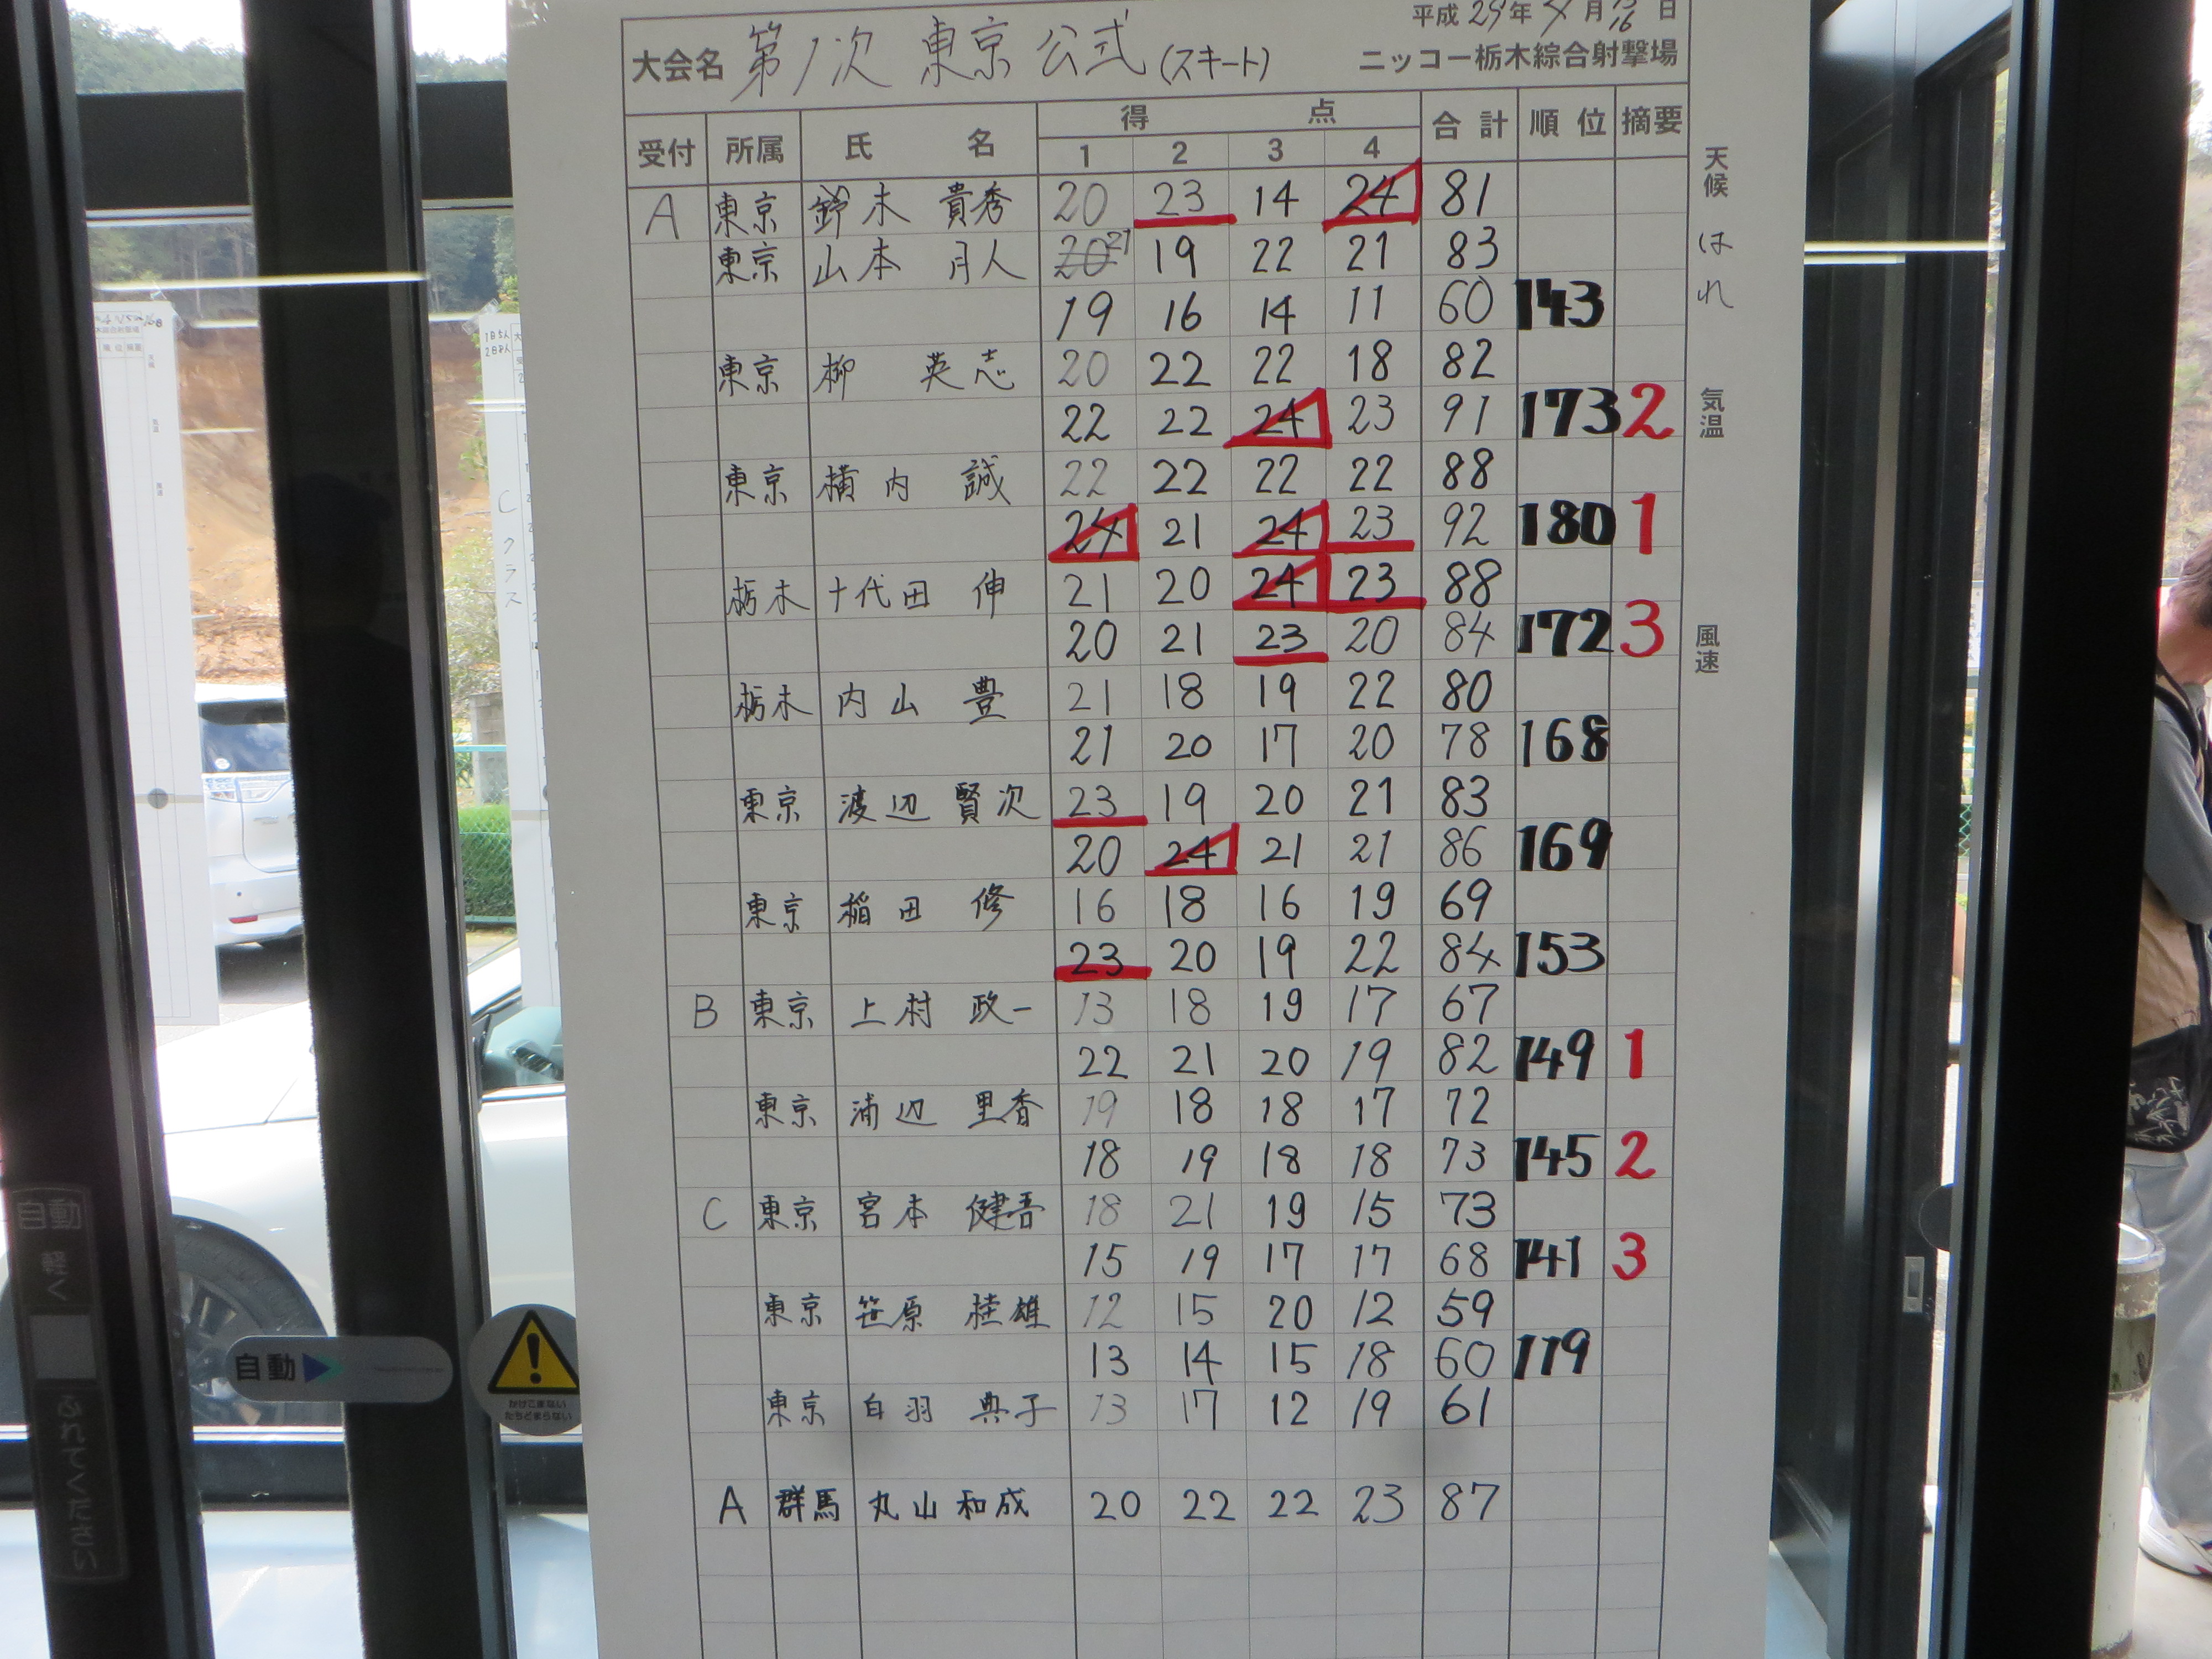 平成 29 年 4 月 15 16 日
大会名 第1次 東京 公式 (スキート) ニッコー栃木綜合射撃場
受付 所属 氏 名 得 点 合 計 順 位 摘要
1 2 3 4
A 東京 鈴木 貴秀 20 23 14 24 81
東京 山本 月人 20 21 19 22 21 83
19 16 14 11 60 143
東京 柳 英志 20 22 22 18 82
22 22 24 23 91 173 2
東京 横内 誠 22 22 22 22 88
24 21 24 23 92 180 1
栃木 十代田 伸 21 20 24 23 88
20 21 23 20 84 172 3
栃木 内山 豊 21 18 19 22 80
21 20 17 20 78 168
東京 渡辺 賢次 23 19 20 21 83
20 24 21 21 86 169
東京 稲田 修 16 18 16 19 69
23 20 19 22 84 153
B 東京 上村 政一 13 18 19 17 67
22 21 20 19 82 149 1
東京 浦辺 里香 19 18 18 17 72
18 19 18 18 73 145 2
C 東京 宮本 健吾 18 21 19 15 73
15 19 17 17 68 141 3
東京 笹原 桂雄 12 15 20 12 59
13 14 15 18 60 119
東京 白羽 典子 13 17 12 19 61
A 群馬 丸山 和成 20 22 22 23 87
天候 はれ
気温
風速
Cクラス
自動
軽く
ふれてください
自動
かけこまない
たちどまらない